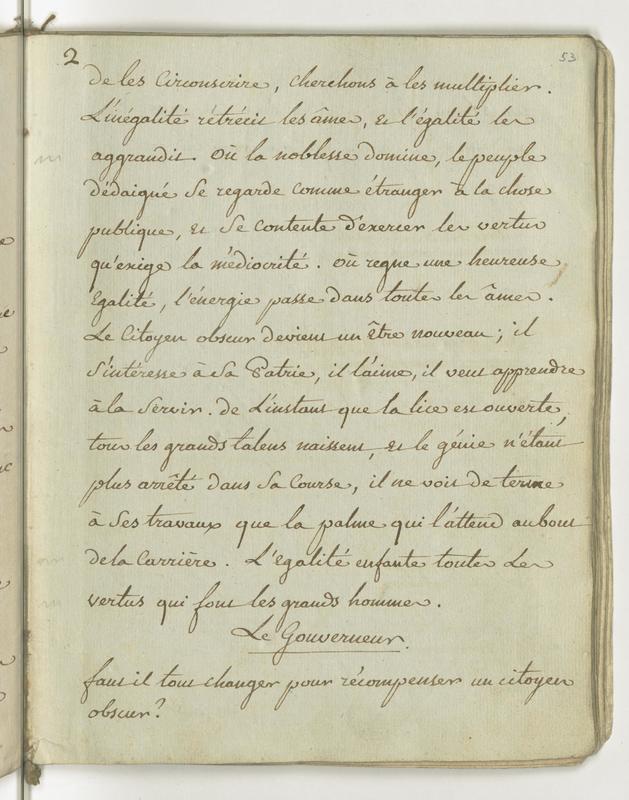 2 53
de les Circonscrire, cherchons à les multiplier.
L'inégalité rétrécit les âmes, et l'égalité les
aggrandit. Où la noblesse domine, le peuple
dédaigné se regarde comme étranger à la chose
publique, et se contente d'exercer les vertus
qu'exige la médiocrité. où regne une heureuse
Egalité, l'énergie passe dans toutes les âmes.
Le Citoyen obscur devient un Être nouveau ; il
s'intéresse à sa Patrie, il l'aime, il veut apprendre
à la servir. de L'instant que la lice est ouverte,
tous les grands talens naissent, et le génie n'étant
plus arrêté dans sa Course, il ne voit de terme
à ses travaux que la palme qui l'attend au bout
de la Carrière. L'égalité enfante toutes Les
vertus qui font les grands hommes.
Le Gouverneur.
faut il tout changer pour récompenser un citoyen
obscur?